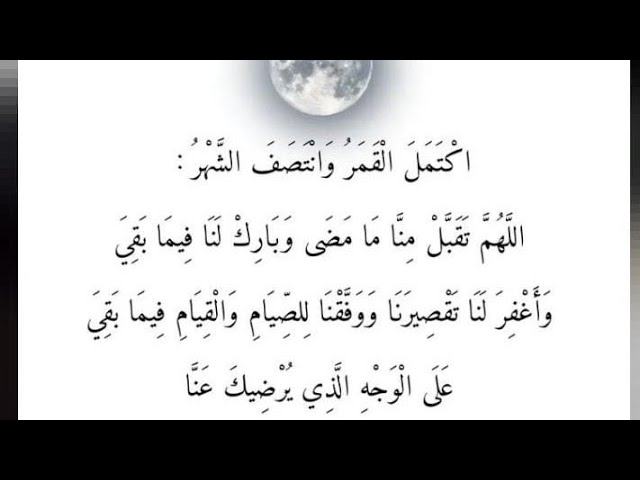 اكْتَمَلَ الْقَمَرُ وَانْتَصَفَ الشَّهْرُ :
اللَّهُمَّ تَقَبَّلْ مِنَّا مَا مَضَى وَبَارِكْ لَنَا فِيمَا بَقِيَ
وَأَغْفِرَ لَنَا تَقْصِيرَنَا وَوَفَّقْنَا لِلصِّيَامِ وَالْقِيَامِ فِيمَا بَقِيَ
عَلَى الْوَجْهِ الَّذِي يُرْضِيكَ عَنَّا